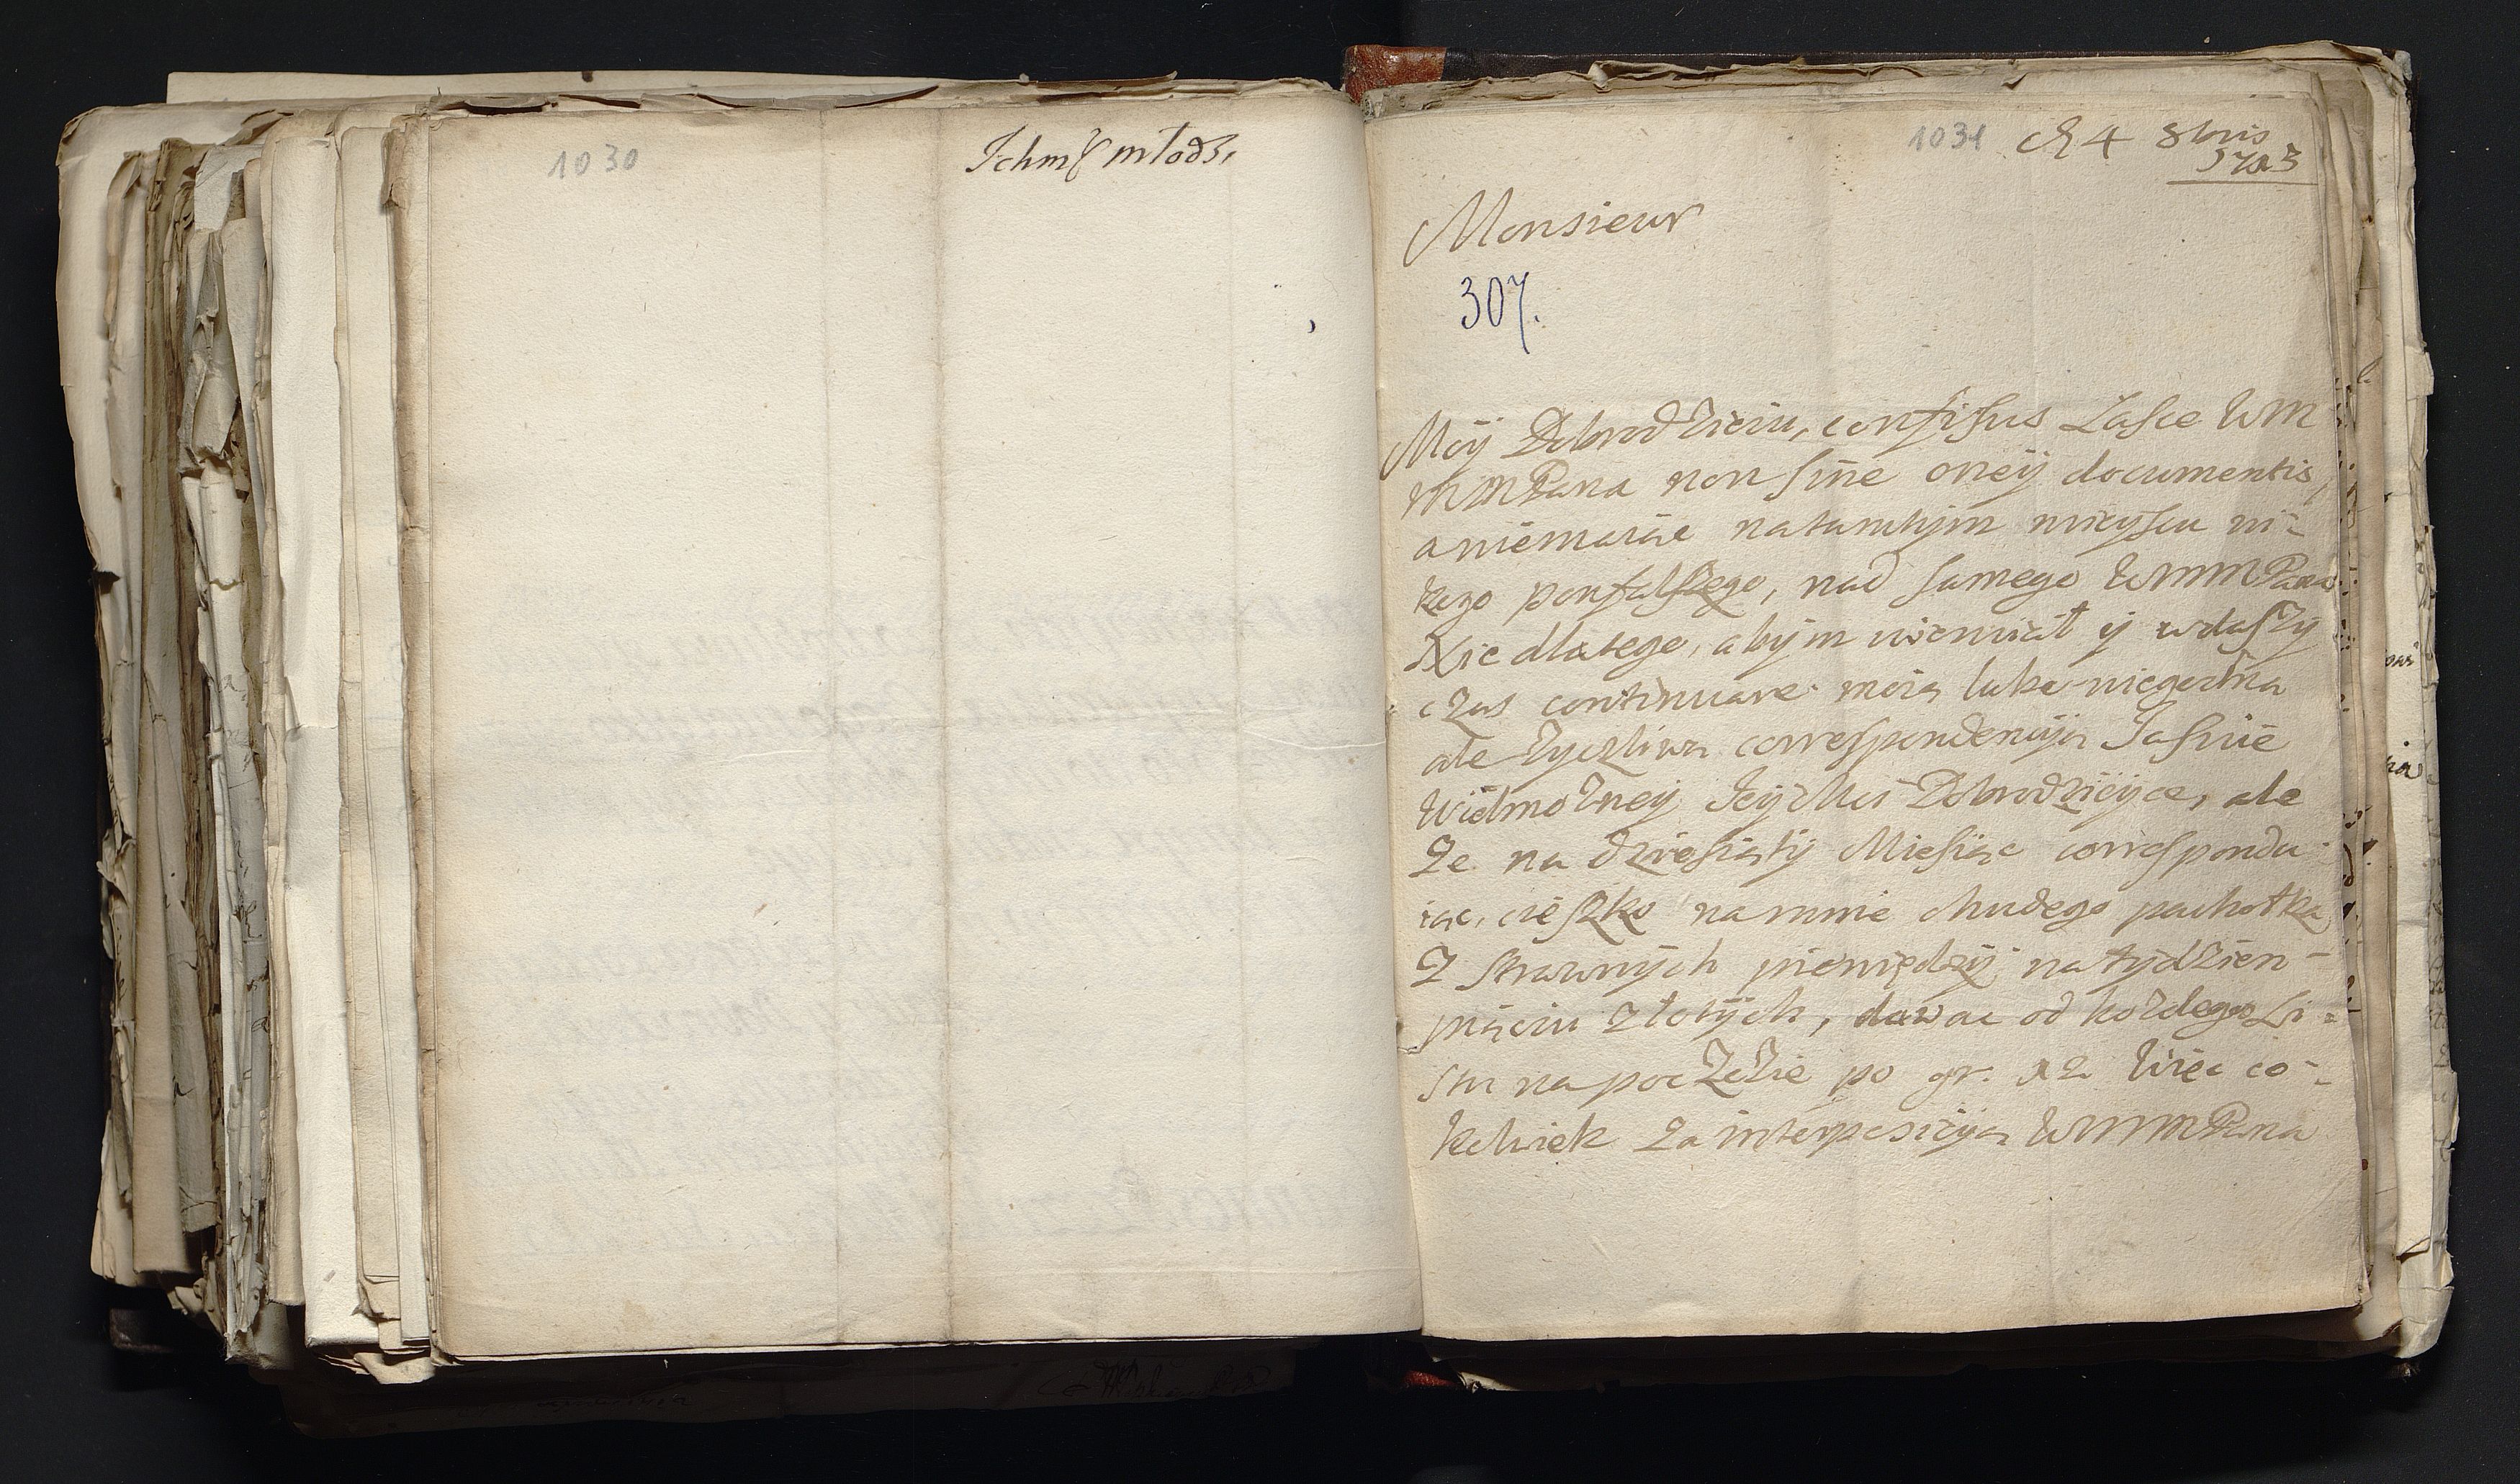 1030
Ichmć młodz,
1031
4 8bris
1703
Monsieur
307.
Móy Dobrodzieiu, confisus Łasce WM
MMPana non sine oneÿ documentis,
aniemaiąc natamtÿm mieyscu ni-
kogo poufalszego, nad samego WMMPana
Nie dlatego, abÿm niemiał ÿ wdalszÿ
czas continuare moią lubo niegodną
ale życzliwą correspondencÿą Jaśnie
Wielmożneÿ JeÿMci Dobrodzieyce, ale
że na dziesiątÿ Miesiąc correspondu-
iąc, cięszko namnie chudego pachołka
z strawnÿch pieniędzÿ natÿdzien-
piąciu złotÿch, dawac od kozdego Li-
stu napoczcie po gr. 12 więc co-
kolwiek za interposicÿą WMMMPana